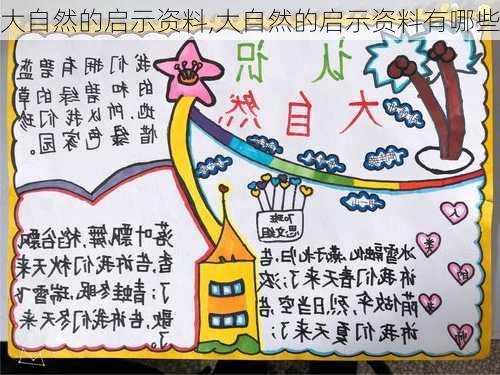 大自然的启示资料,大自然的启示资料有哪些
认识
大自然
我们拥有碧蓝
的和碧绿的草
地,所以我们珍
惜绿色家
园。
冰雪融化,燕子北归,告
诉我们春天来了;浓
荫做伞,烈日当空,告
诉我们夏天来了;
落叶飘舞,稻谷飘
香告诉我们秋天来
了;青蛙冬眠,瑞雪飞
歌,告诉我们冬天来
了。